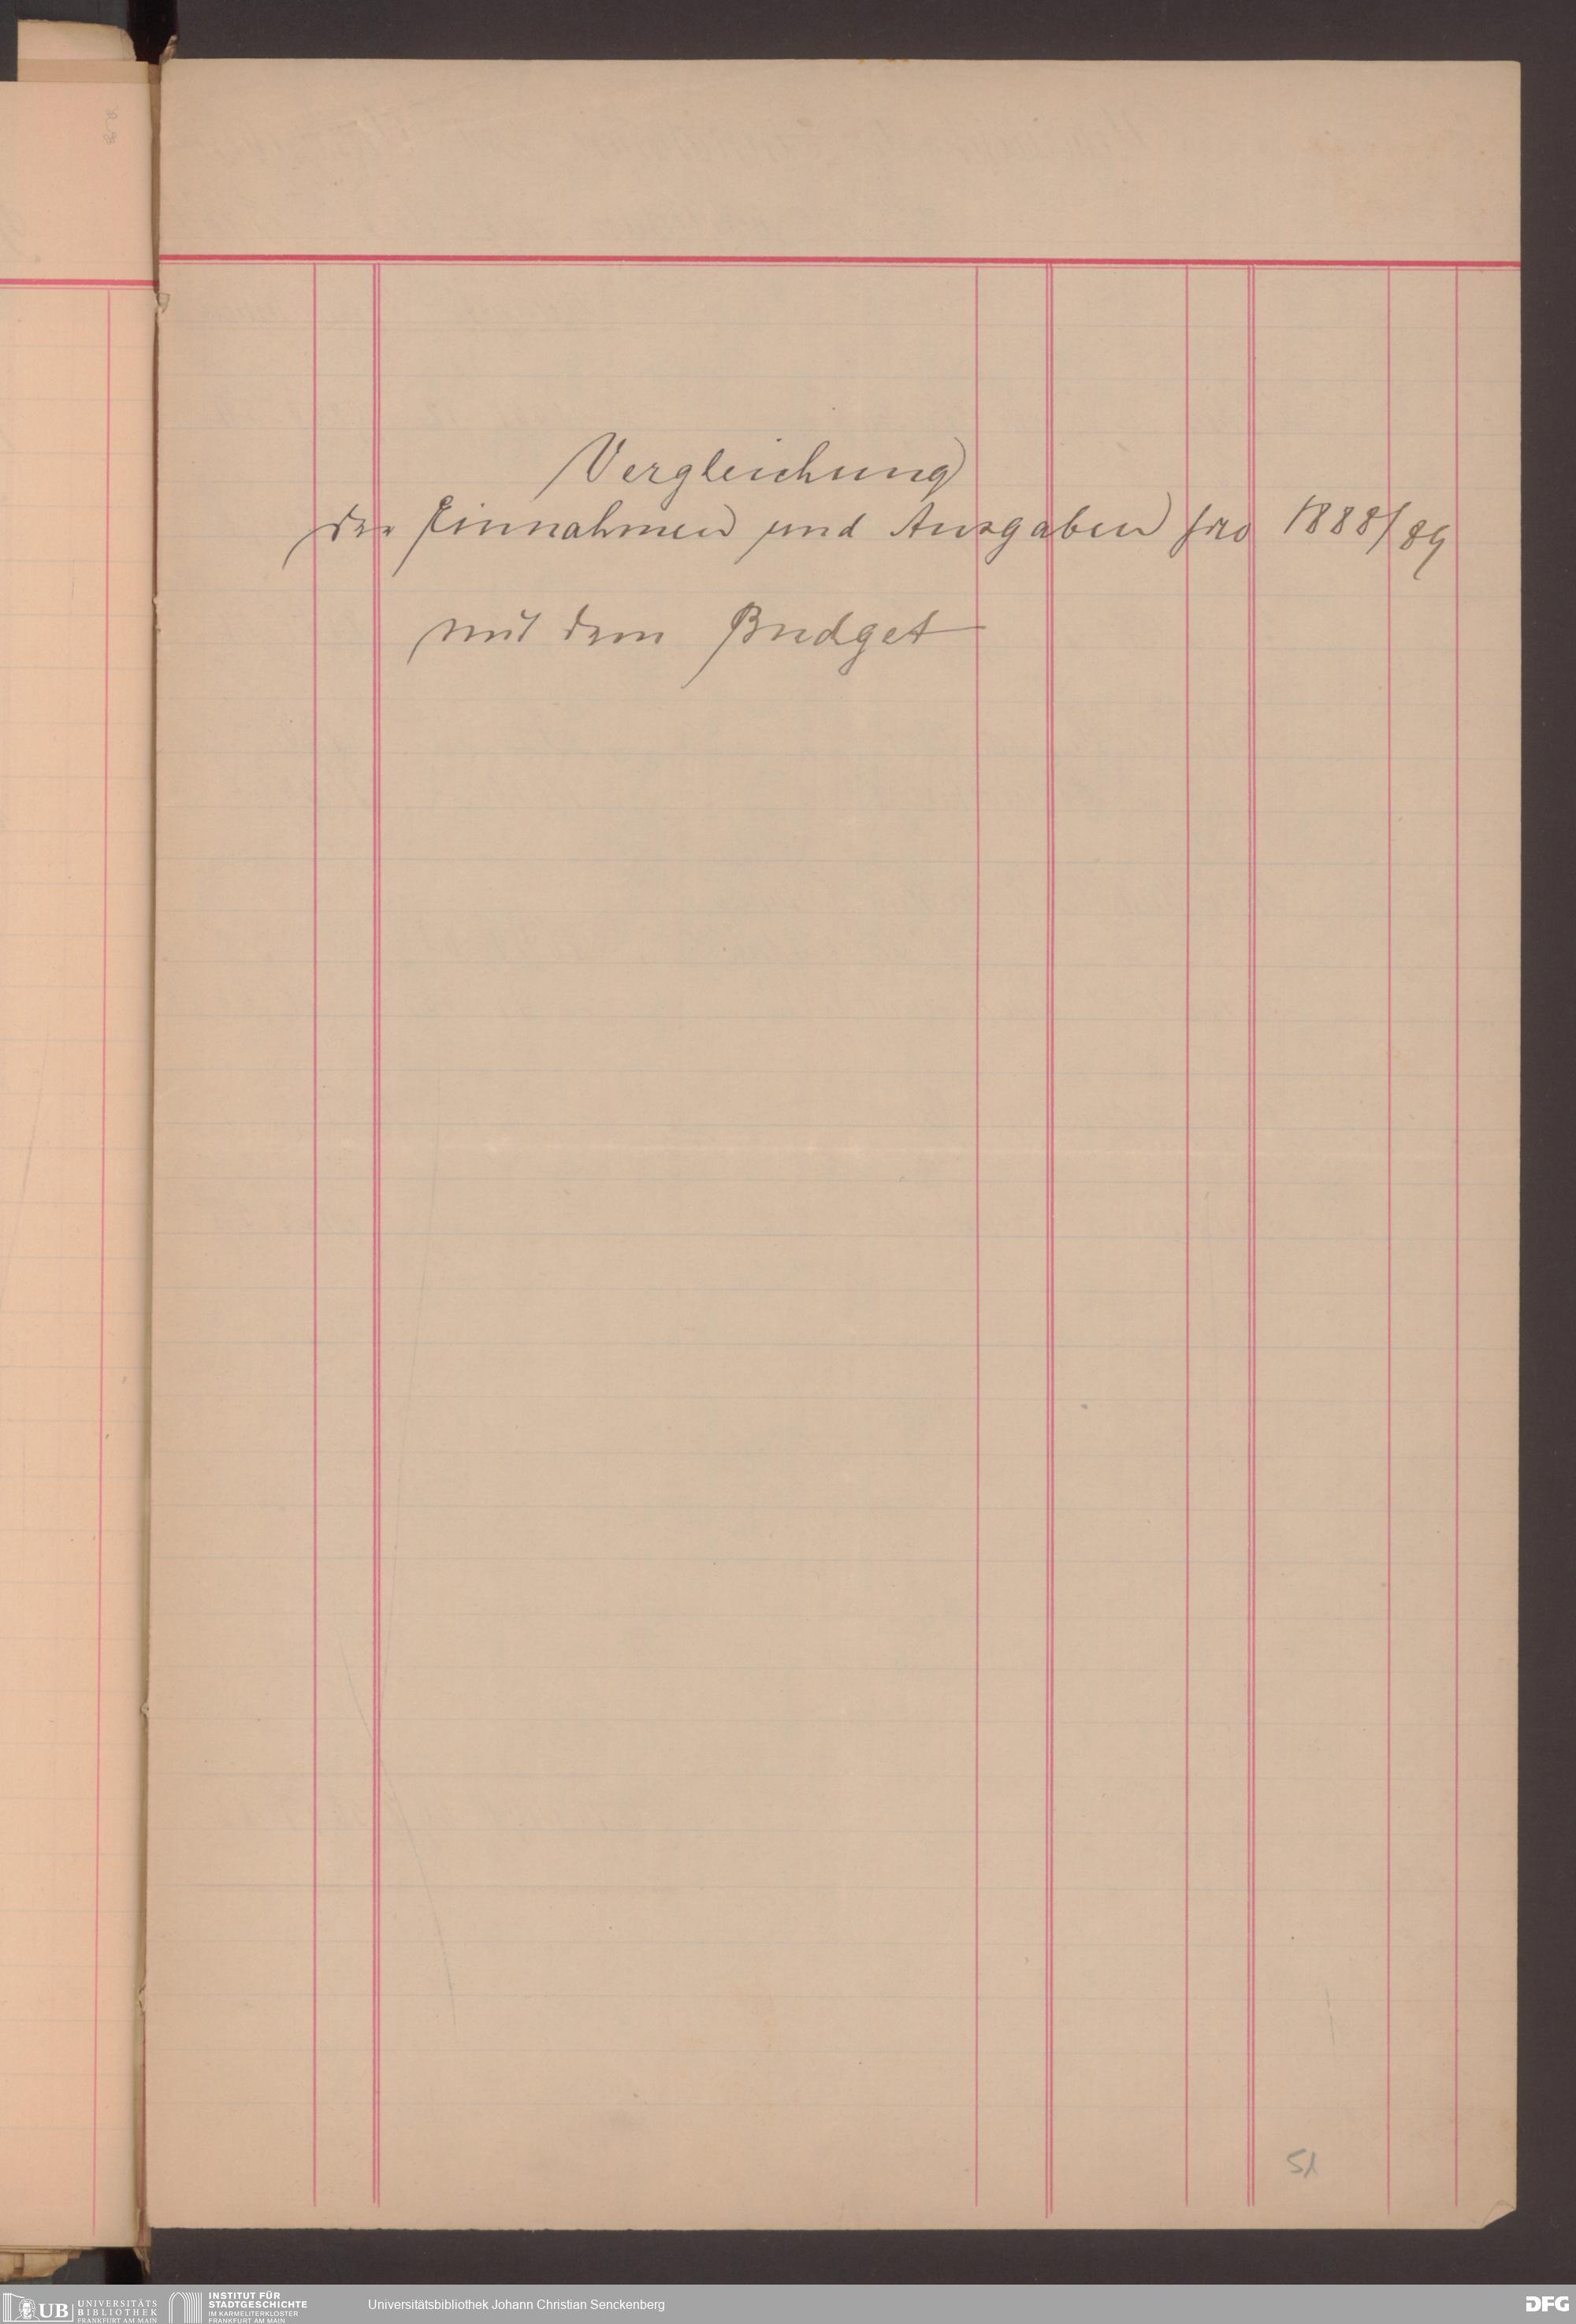 Vergleichung
der Einnahmen und Ausgaben pro 1888/89
mit dem Budget
51
UB UNIVERSITÄTS BIBLIOTHEK FRANKFURT AM MAIN
INSTITUT FÜR STADTGESCHICHTE IM KARMELITERKLOSTER FRANKFURT AM MAIN
Universitätsbibliothek Johann Christian Senckenberg
DFG